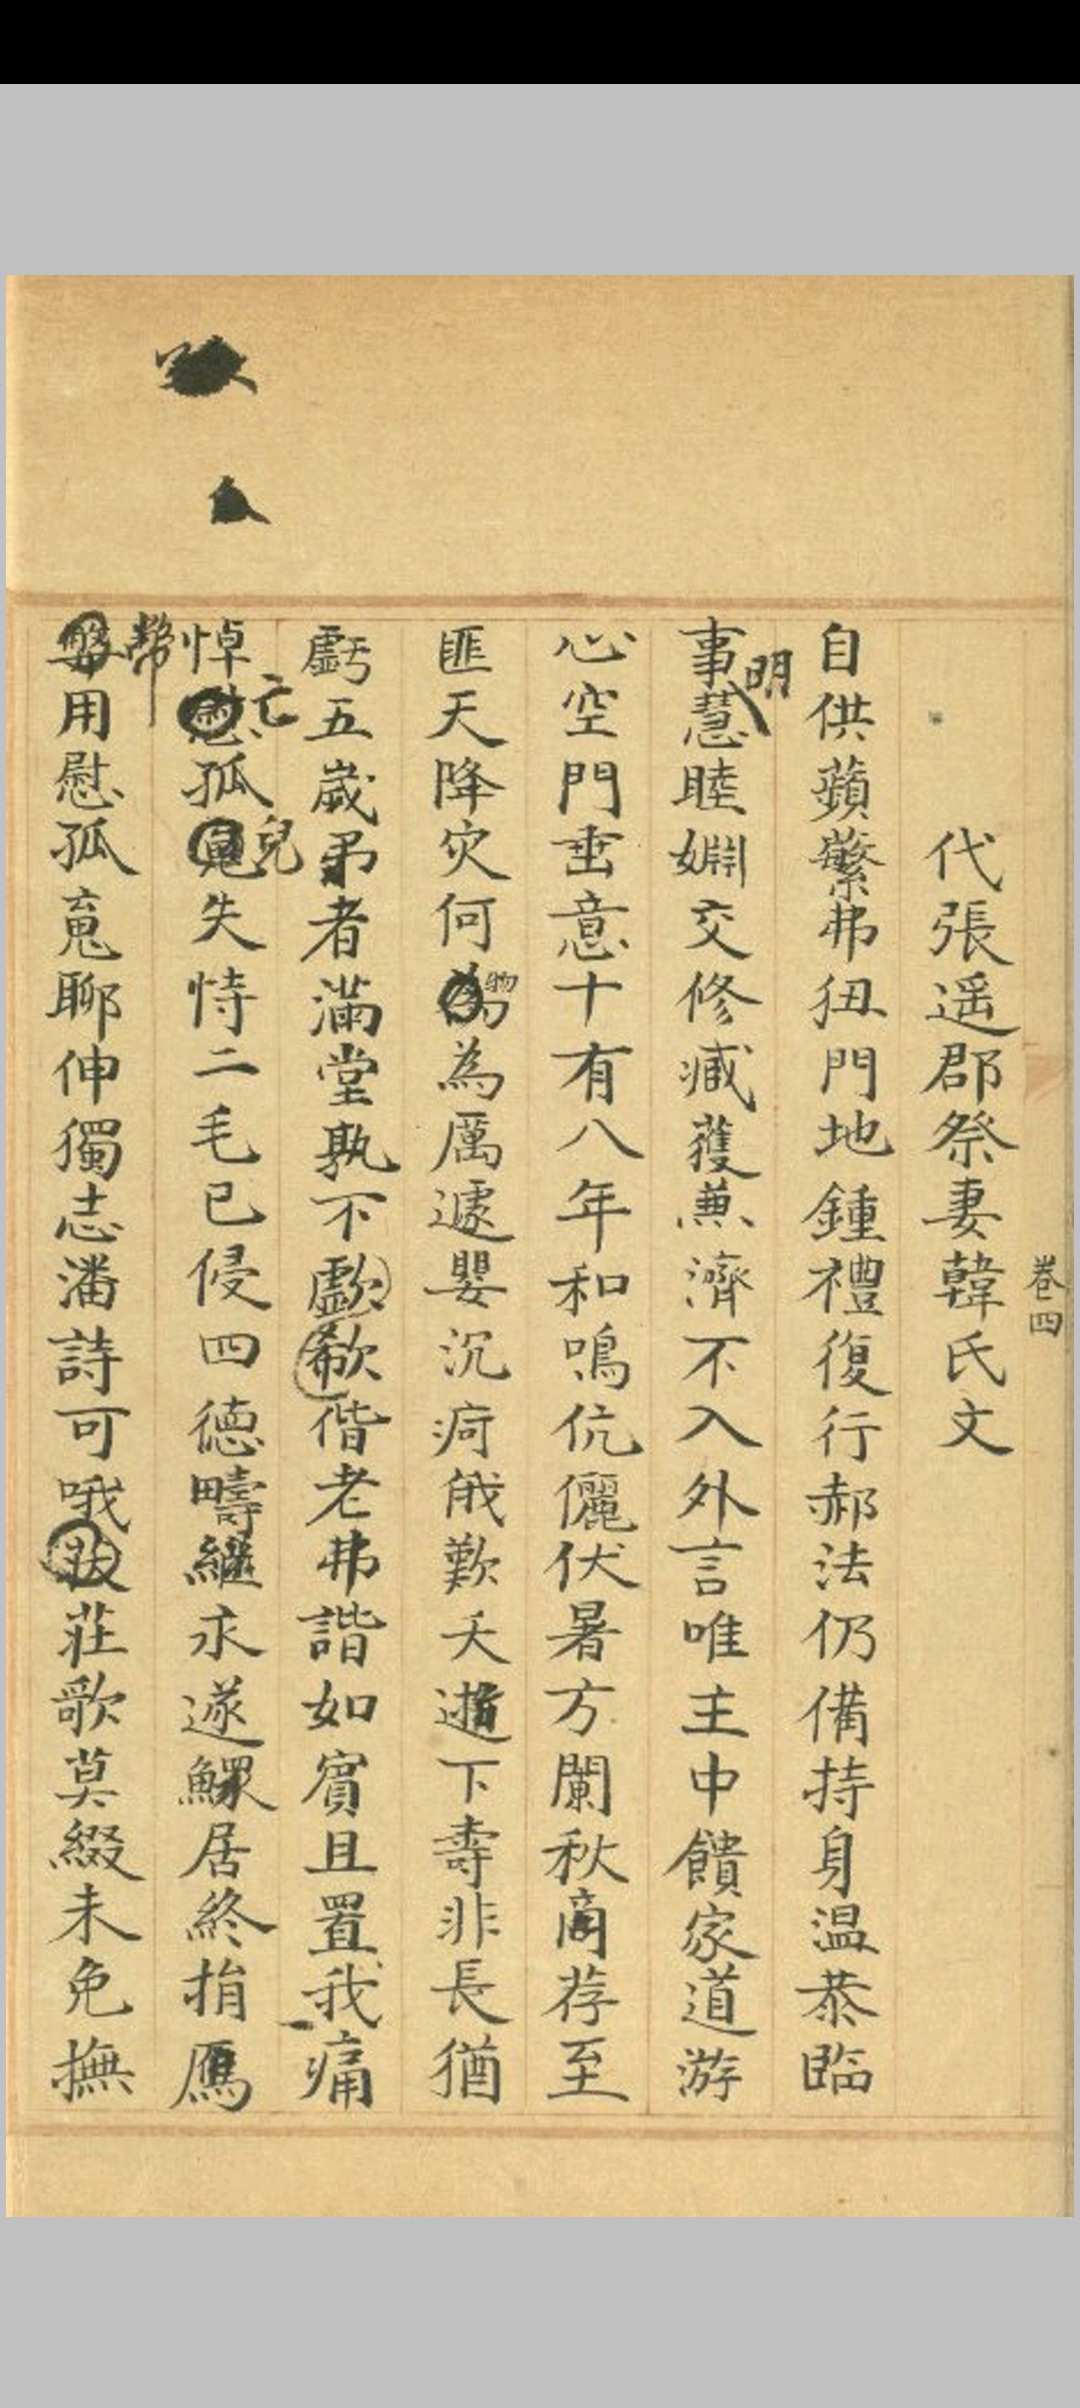 卷四
代張遥郡祭妻韓氏文
自供蘋蘩弗狃門地鍾禮復行郝法仍備持身温恭臨
事明慧睦婣交修臧獲蕭濟不入外言唯主中饋家道游
心空門垂意十有八年和鳴伉儷伏暑方闌秋商荐至
匪天降灾何物為厲遽嬰沉疴俄歎夭逝下壽非長猶
虧五歲弔者滿堂孰不歔欷偕老弗諧如賓且置我痛
悼亡孤兒失恃二毛已侵四德疇繼求遂鰥居終捐鴈
幣用慰孤䰟聊伸獨志潘詩可哦莊歌莫綴未免撫